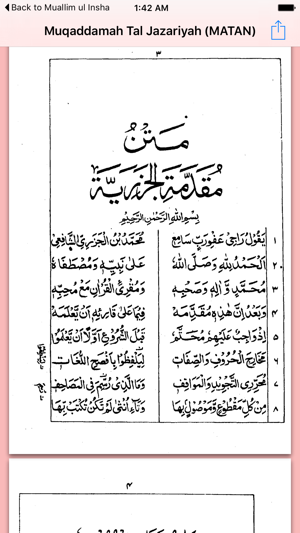 Back to Muallim ul Insha 1:42 AM
Muqaddamah Tal Jazariyah (MATAN)
٣
مَتْنُ
مُقَدِّمَةِ الْجَزَرِيَّةِ
بِسْمِ اللهِ الرَّحْمٰنِ الرَّحِيْمِ
١ يَقُوْلُ رَاجِيْ عَفْوِ رَبٍّ سَامِعٖ مُحَمَّدُ بْنُ الْجَزَرِيِّ الشَّافِعِيْ
٢ اَلْحَمْدُ لِلّٰهِ وَصَلَّى اللهُ عَلٰى نَبِيِّهٖ وَمُصْطَفَاهُ
٣ مُحَمَّدٍ وَّاٰلِهٖ وَصَحْبِهٖ وَمُقْرِئِ الْقُرْاٰنِ مَعْ مُحِبِّهٖ
٤ وَبَعْدُ اِنَّ هٰذِهٖ مُقَدِّمَةٌ فِيْمَا عَلٰى قَارِئِهٖ اَنْ يَّعْلَمَهٗ
٥ اِذْ وَاجِبٌ عَلَيْهِمْ مُحَتَّمٌ قَبْلَ الشُّرُوْعِ اَوَّلًا اَنْ يَّعْلَمُوْا
٦ مَخَارِجَ الْحُرُوْفِ وَالصِّفَاتِ لِيَلْفِظُوْا بِاَفْصَحِ اللُّغَاتِ
٧ مُحَرِّرِي التَّجْوِيْدِ وَالْمَوَاقِفِ وَمَا الَّذِيْ رُسِّمَ فِي الْمَصَاحِفِ
٨ مِنْ كُلِّ مَقْطُوْعٍ وَّمَوْصُوْلٍ بِهَا وَتَاءِ اُنْثٰى لَمْ تَكُنْ تُكْتَبْ بِهَا
٤